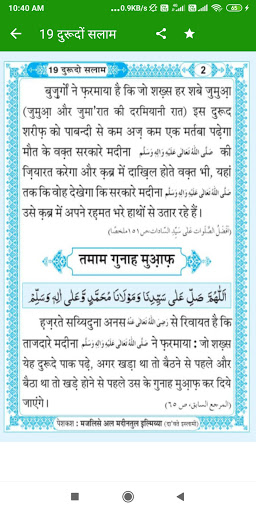 10:40 AM ...0.9KB/s 64
19 दुरूदों सलाम
19 दुरूदो सलाम 2
बुज़ुर्गों ने फ़रमाया है कि जो शख़्स हर शबे जुमुआ़
(जुमुआ़ और जुमा'रात की दरमियानी रात) इस दुरूद
शरीफ़ को पाबन्दी से कम अज़ कम एक मर्तबा पढ़ेगा
मौत के वक़्त सरकारे मदीना صَلَّى اللهُ تَعَالٰى عَلَيْهِ وَاٰلِهٖ وَسَلَّم की
ज़ियारत करेगा और क़ब्र में दाख़िल होते वक़्त भी, यहां
तक कि वोह देखेगा कि सरकारे मदीना صَلَّى اللهُ تَعَالٰى عَلَيْهِ وَاٰلِهٖ وَسَلَّم
उसे क़ब्र में अपने रह़मत भरे हाथों से उतार रहे हैं।
(اَفْضَلُ الصَّلَوات عَلٰى سَيِّدِ السَّادات ص١٥١ ملخصًا)
तमाम गुनाह मुआ़फ़
اَللّٰهُمَّ صَلِّ عَلٰى سَيِّدِنَا وَمَوْلَانَا مُحَمَّدٍ وَّعَلٰى اٰلِهٖ وَسَلِّمْ
ह़ज़रते सय्यिदुना अनस رَضِيَ اللهُ تَعَالٰى عَنْهُ से रिवायत है कि
ताजदारे मदीना صَلَّى اللهُ تَعَالٰى عَلَيْهِ وَاٰلِهٖ وَسَلَّم ने फ़रमाया : जो शख़्स
येह दुरूदे पाक पढ़े, अगर खड़ा था तो बैठने से पहले और
बैठा था तो खड़े होने से पहले उस के गुनाह मुआ़फ़ कर दिये
जाएंगे। (المرجع السابق، ص ٦٥)
पेशकश : मजलिसे अल मदीनतुल इ़ल्मिय्या (दा'वते इस्लामी)